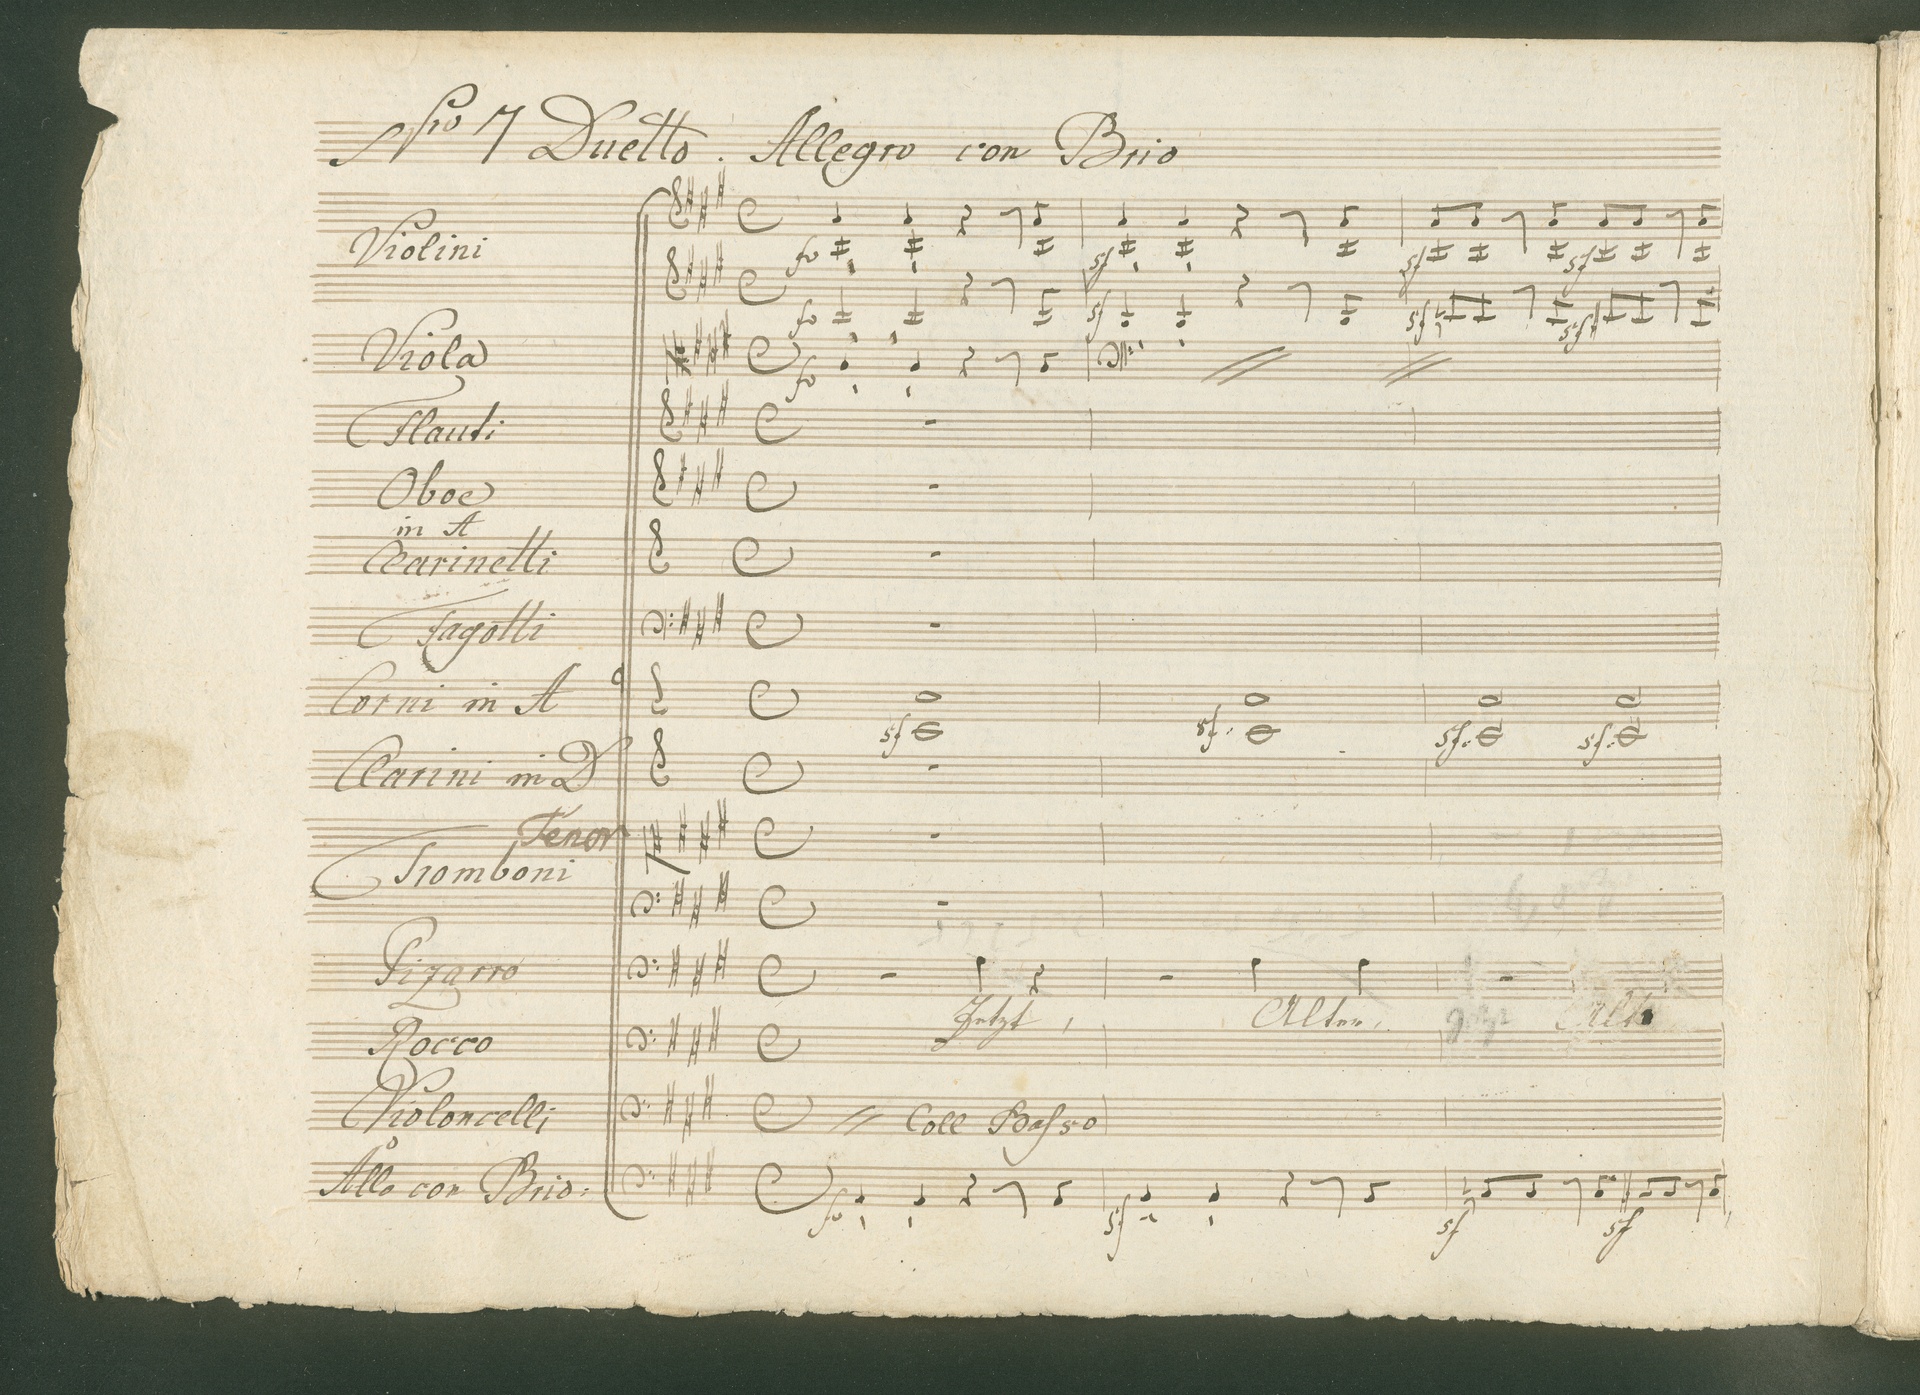 Nro 7 Duetto. Allegro con Brio
Violini
fo sf sf sf
fo sf sf sf
Viola
fo
Flauti
Oboe
in A
Clarinetti
Fagotti
Corni in A
sf sf: sf: sf:
Clarini in D
Tenor
Tromboni
Pizarro
Jetzt, Alter,
Rocco
Violoncelli
Coll Basso
Allo con Brio:
fo sf sf sf